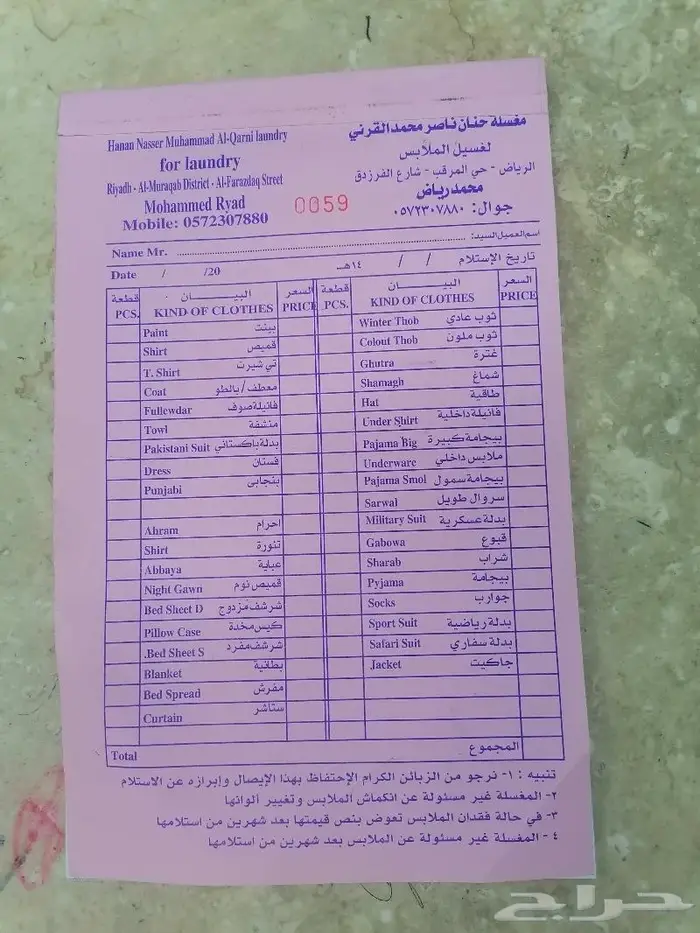 Hanan Nasser Muhammad Al-Qarni laundry
for laundry
Riyadh - Al-Muraqab District - Al-Farazdaq Street
Mohammed Ryad
Mobile: 0572307880
0059
مغسلة حنان ناصر محمد القرني
لغسيل الملابس
الرياض - حي المرقب - شارع الفرزدق
محمد رياض
جوال: ٠٥٧٢٣٠٧٨٨٠
Name Mr. اسم العميل السيد:
Date / /20 / / ١٤هـ تاريخ الإستلام
قطعة البيـــان السعر قطعة البيـــان السعر
PCS. KIND OF CLOTHES PRICE PCS. KIND OF CLOTHES PRICE
Paint بينت
Shirt قميص
T. Shirt تي شيرت
Coat معطف/بالطو
Fullewdar فانيلة صوف
Towl منشفة
Pakistani Suit بدلة باكستاني
Dress فستان
Punjabi بنجابى
Ahram احرام
Shirt تنورة
Abbaya عباية
Night Gawn قميص نوم
Bed Sheet D شرشف مزدوج
Pillow Case كيس مخدة
.Bed Sheet S شرشف مفرد
Blanket بطانية
Bed Spread مفرش
Curtain ستائر
Winter Thob ثوب عادي
Colout Thob ثوب ملون
Ghutra غترة
Shamagh شماغ
Hat طاقية
Under Shirt فانيلة داخلية
Pajama Big بيجامة كبيرة
Underware ملابس داخلي
Pajama Smol بيجامة سمول
Sarwal سروال طويل
Military Suit بدلة عسكرية
Gabowa قبوع
Sharab شراب
Pyjama بيجامة
Socks جوارب
Sport Suit بدلة رياضية
Safari Suit بدلة سفاري
Jacket جاكيت
Total المجموع
تنبيه : ١- نرجو من الزبائن الكرام الإحتفاظ بهذا الإيصال وإبرازه عن الاستلام
٢- المغسلة غير مسئولة عن انكماش الملابس وتغيير ألوانها
٣- في حالة فقدان الملابس تعوض بنص قيمتها بعد شهرين من استلامها
٤ - المغسلة غير مسئولة عن الملابس بعد شهرين من استلامها
حراج